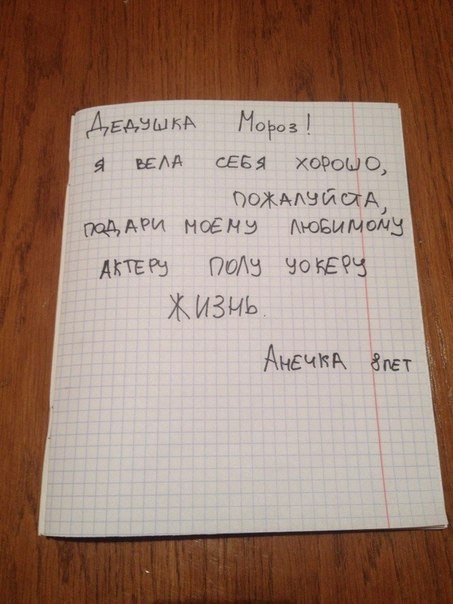 Дедушка Мороз!
я вела себя хорошо,
пожалуйста,
подари моему любимому
актеру Полу Уокеру
жизнь.
Анечка 8 лет